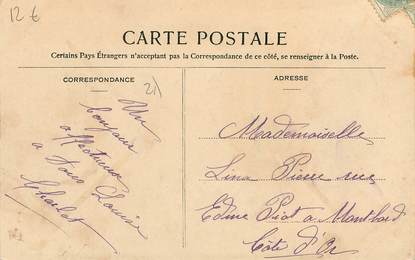 12 €
CARTE POSTALE
Certains Pays Étrangers n'acceptant pas la Correspondance de ce côté, se renseigner à la Poste.
CORRESPONDANCE
21
Un
bonjour
a
a tous Louise
Charlot
ADRESSE
Mademoiselle
Lina Pierre rue
Edme Piot a Montbard
Côte d'Or